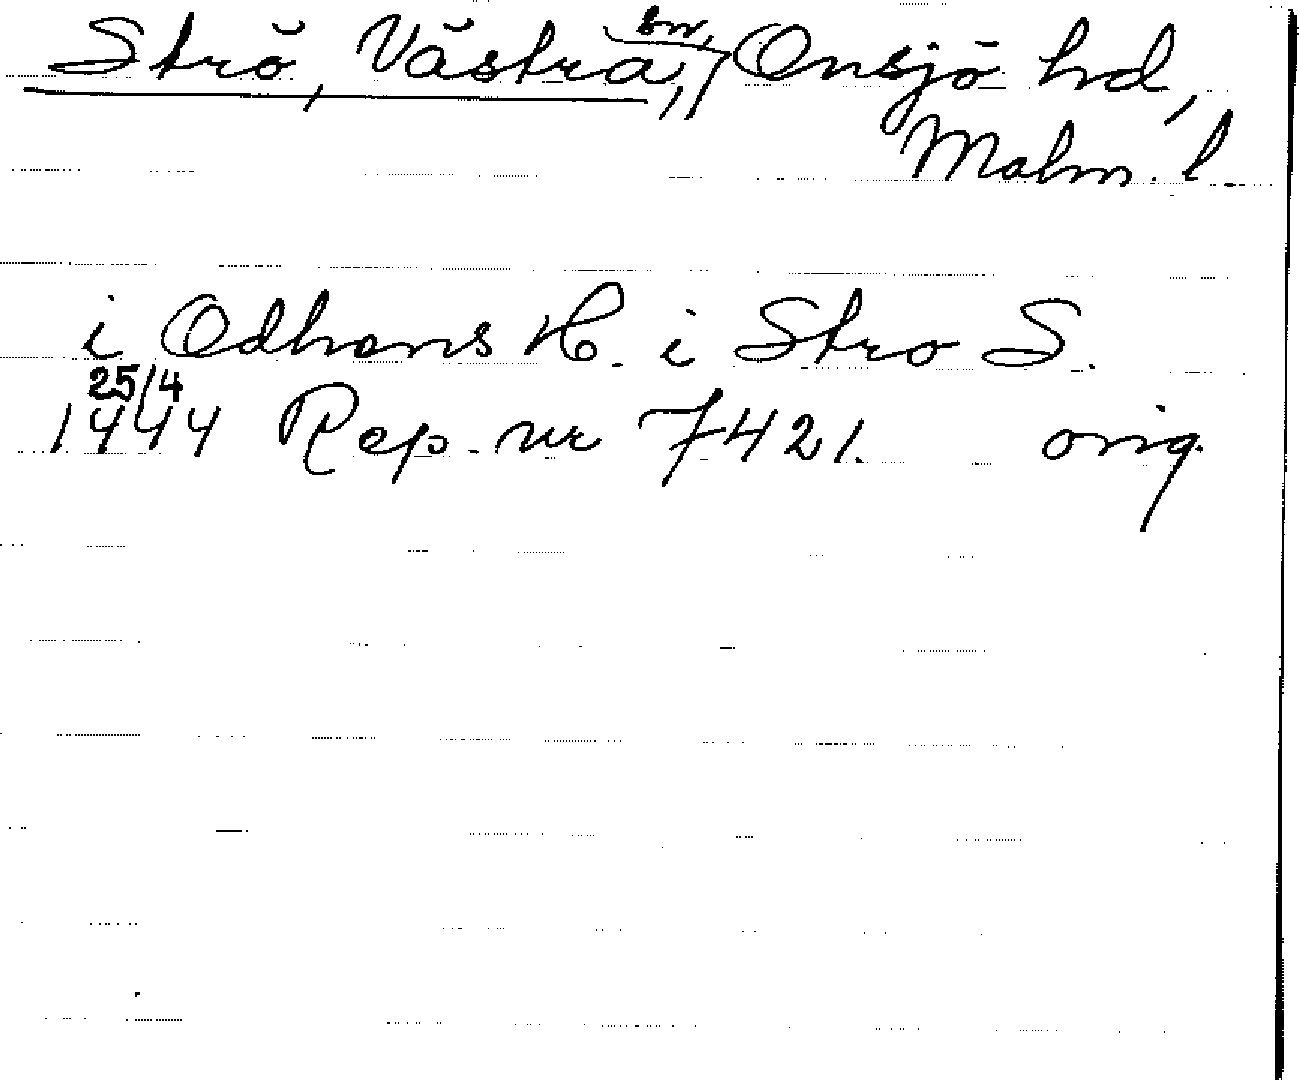 Strö, Västra, sn, Onsjö hd,
Malm. l
i Odhans H. i Stro S.
25/4
1444 Rep. nr 7421. orig.